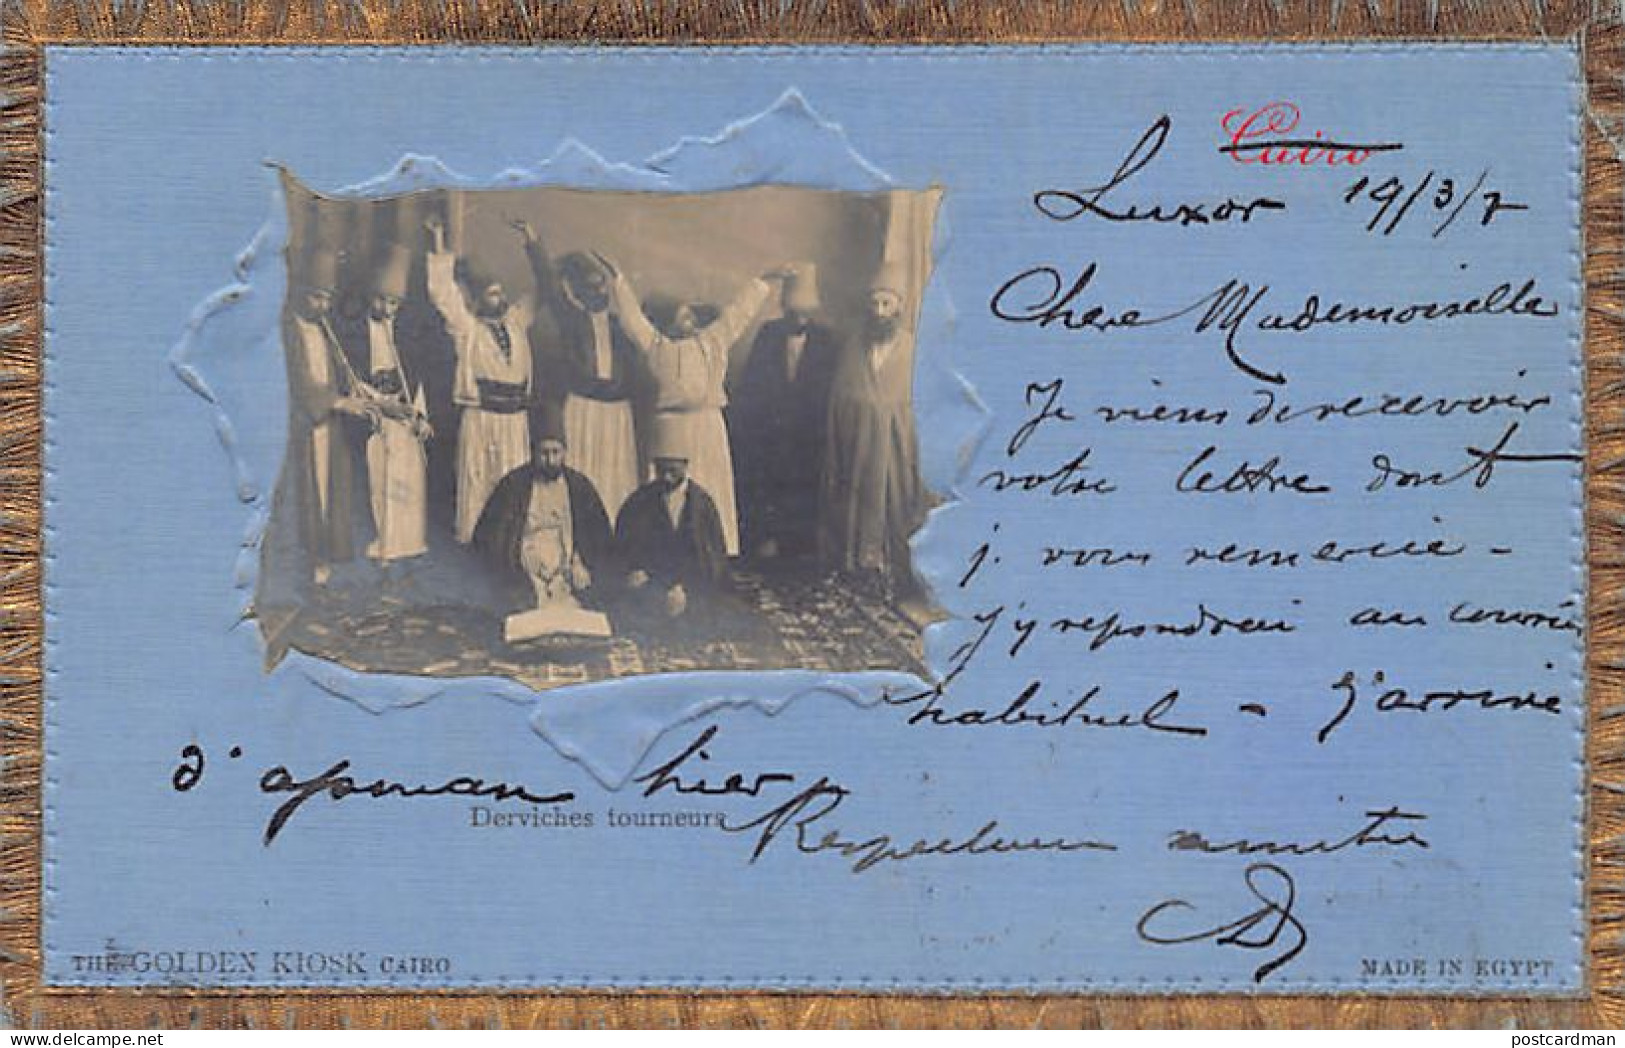 Cairo
Luxor 19/3/7
Chere Mademoiselle
Je viens de recevoir
votre lettre dont
je vous remercie -
J'y repondrai au courrier
habituel - J'arrive
d'Asman hier
Derviches tourneurs
Respectueuses amities
THE GOLDEN KIOSK CAIRO
MADE IN EGYPT
postcardman